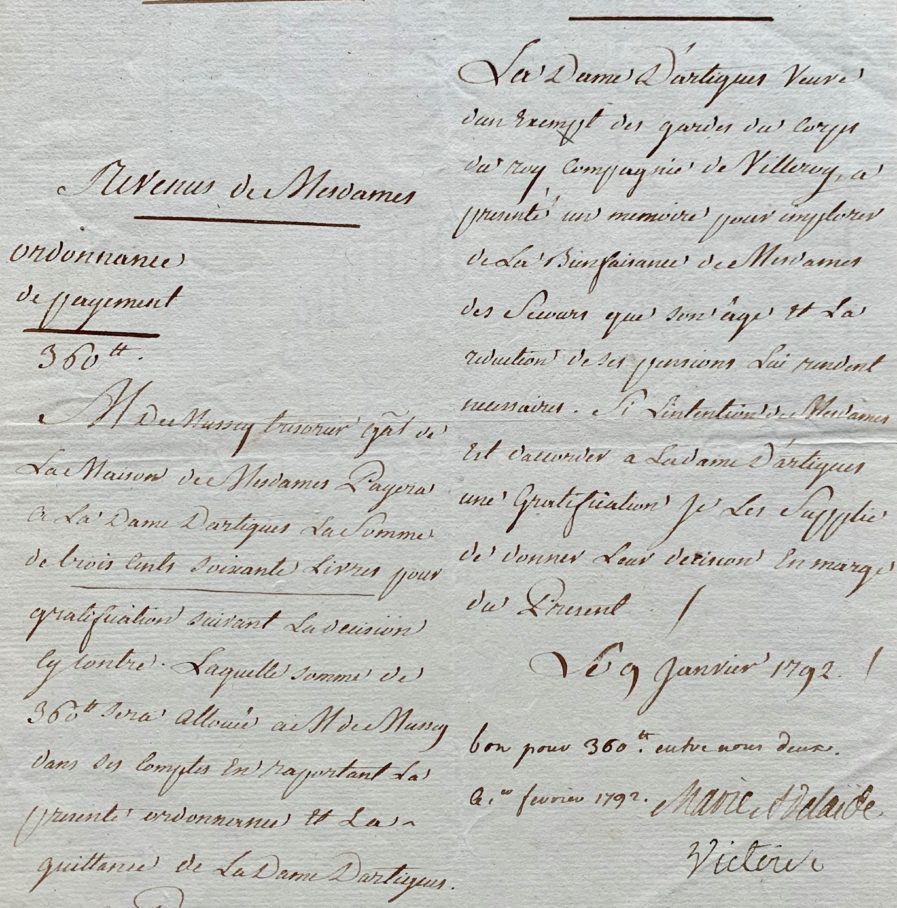 Revenus de Mesdames
ordonnance
de payement
360tt.
M De Nussey trésorier gñrl de
La Maison de Mesdames Payera
a La Dame Dartigues La Somme
de trois Cents soixante Livres pour
gratification suivant La decision
Cy Contre. Laquelle somme de
360tt sera allouée a M de Nussey
dans ses Comptes En raportant La
presente ordonnance Et La
quittance de La Dame Dartigues.
La Dame D'artigues Veuve
d'un Exempt des gardes du Corps
du roy Compagnie de Villeroy, a
presenté un memoire pour implorer
de La Bienfaisance de Mesdames
des Secours que son âge Et La
reduction de ses pensions Lui rendent
necessaires. Si L'intention de Mesdames
Est d'accorder a La dame D'artigues
une Gratification Je Les Supplie
de donner Leur decision En marge
du Present
Le 9 Janvier 1792.
bon pour 360tt. entre nous deux.
Ce 1er fevrier 1792. Marie Adelaide
Victoire